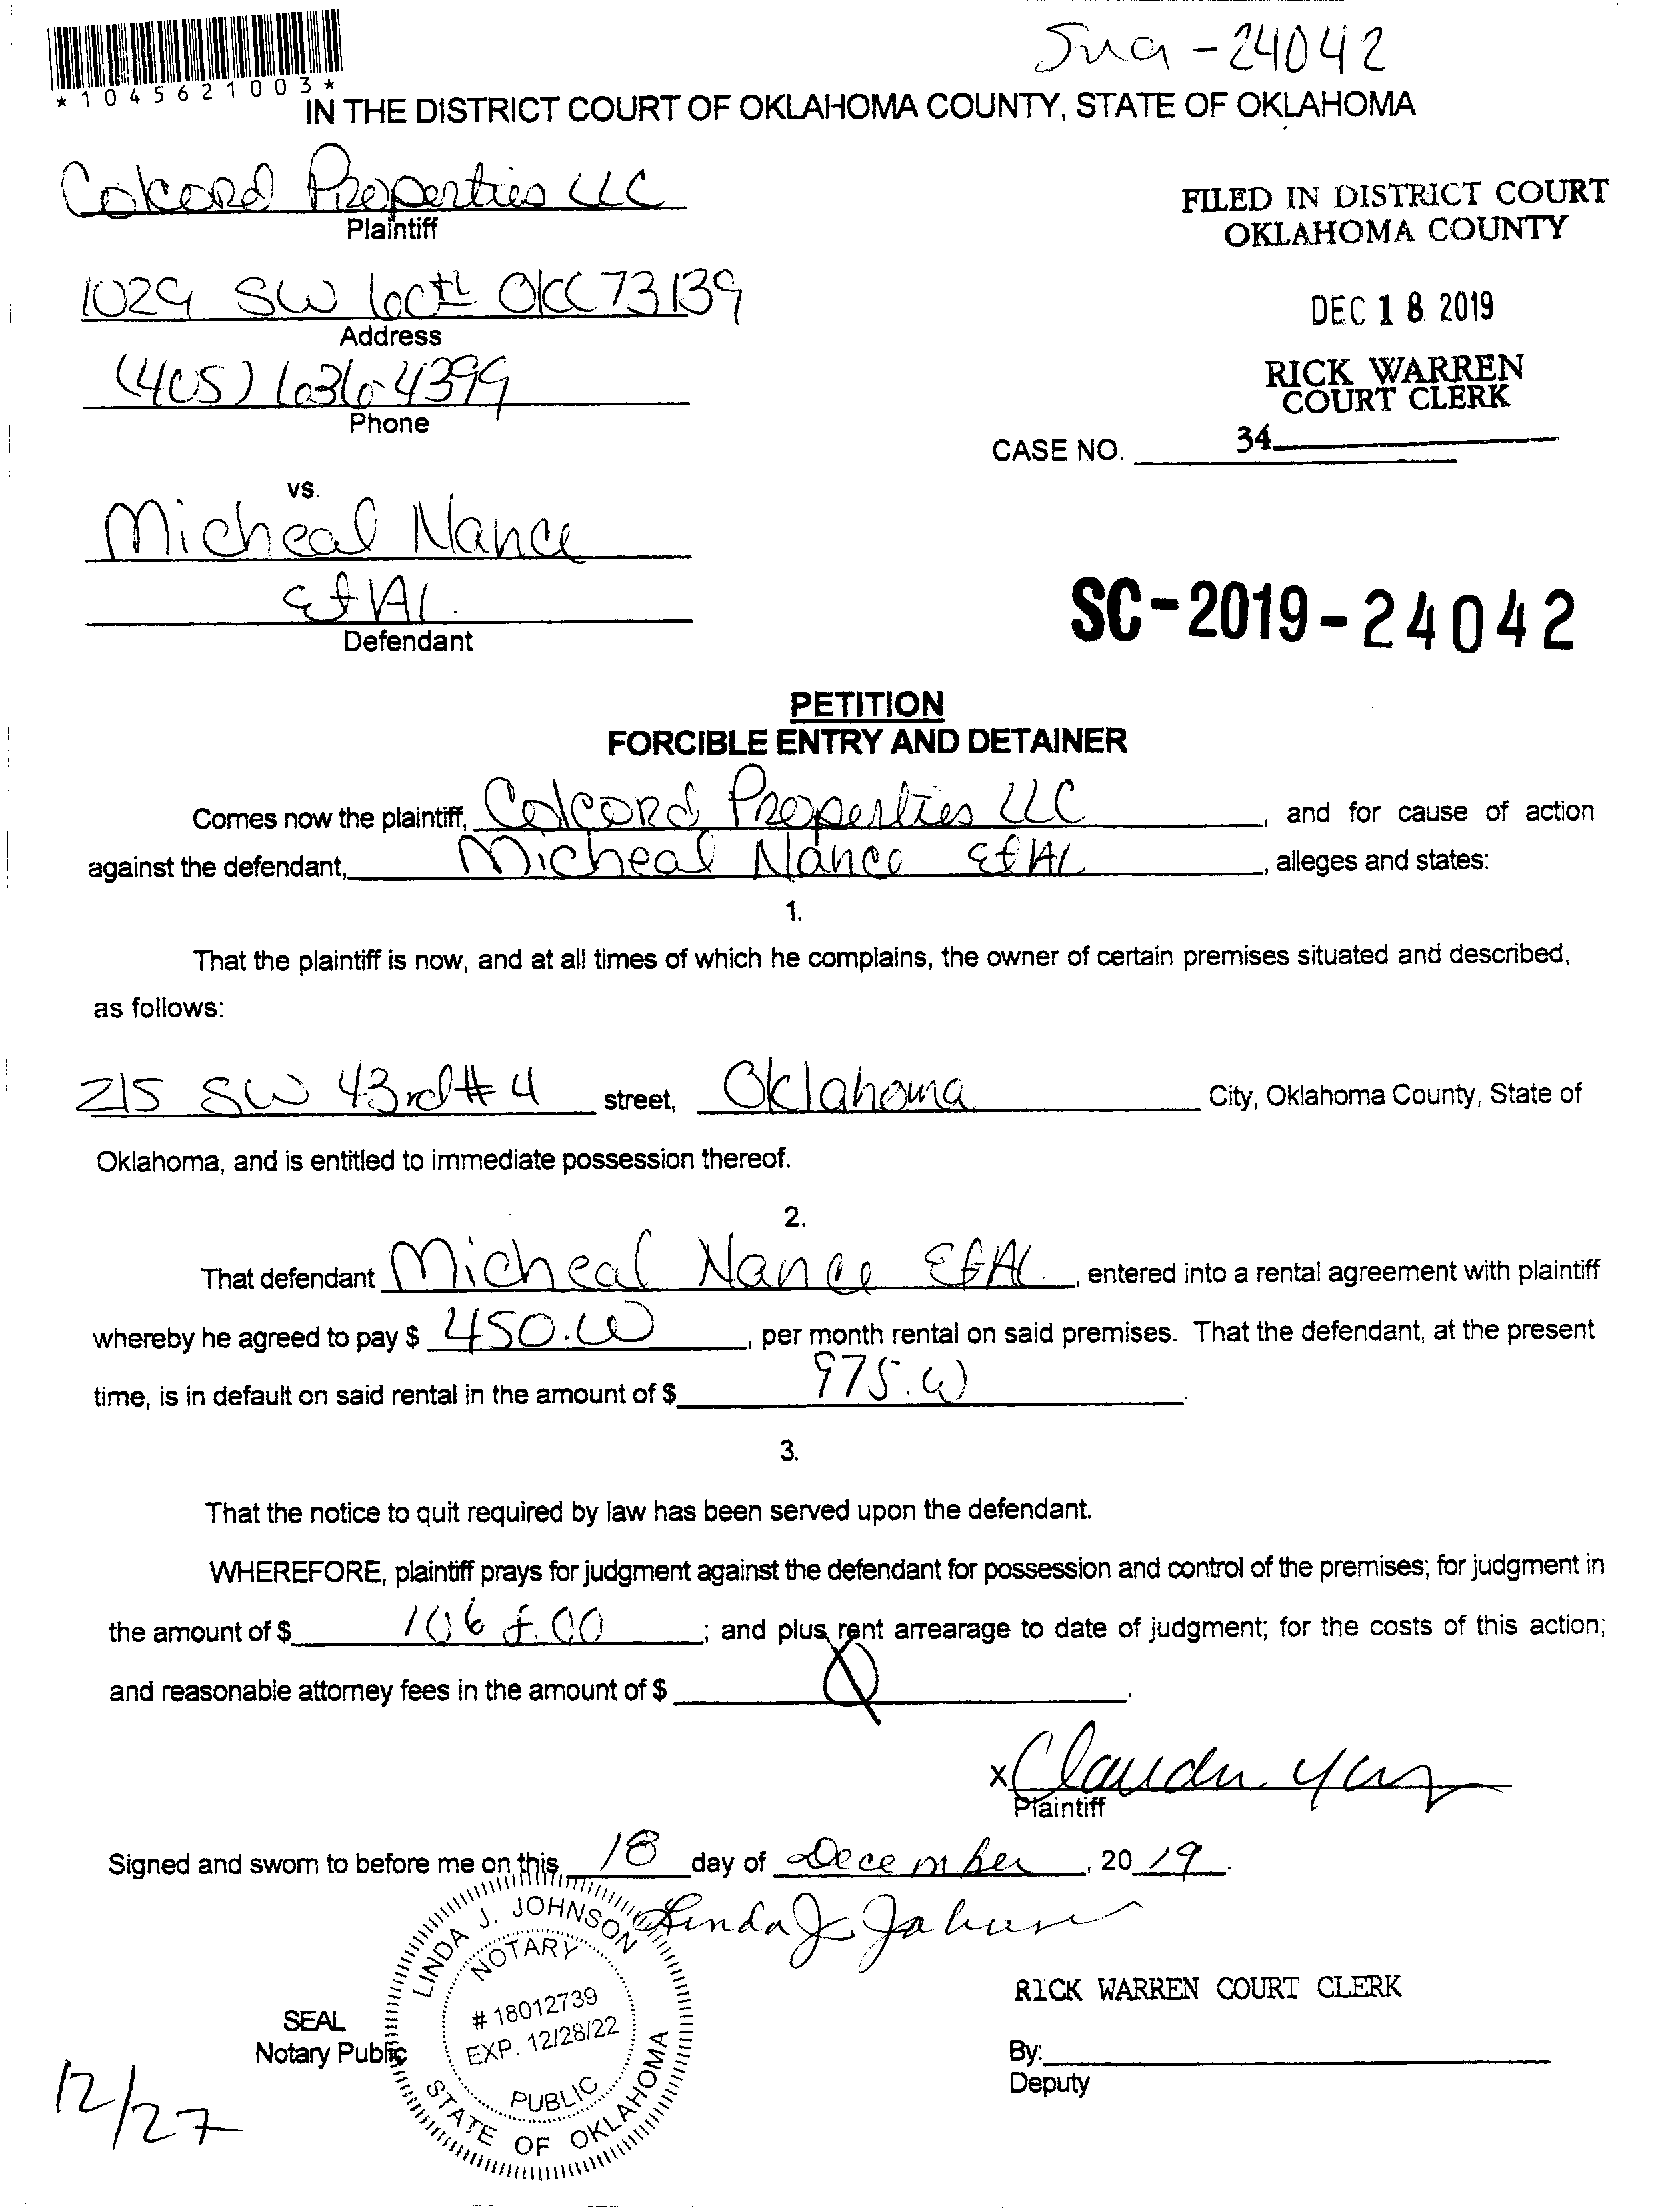 *1045621003*
Sma - 24042
IN THE DISTRICT COURT OF OKLAHOMA COUNTY, STATE OF OKLAHOMA
Colcord Properties LLC
Plaintiff
FILED IN DISTRICT COURT
OKLAHOMA COUNTY
1029 SW 60th OKC 73139
Address
DEC 18 2019
(405) 636-4399
Phone
RICK WARREN
COURT CLERK
CASE NO. 34
vs.
Micheal Nance
Et Al.
Defendant
SC-2019-24042
PETITION
FORCIBLE ENTRY AND DETAINER
Comes now the plaintiff, Colcord Properties LLC, and for cause of action
against the defendant, Micheal Nance Et Al, alleges and states:
1.
That the plaintiff is now, and at all times of which he complains, the owner of certain premises situated and described,
as follows:
215 SW 43rd # 4 street, Oklahoma City, Oklahoma County, State of
Oklahoma, and is entitled to immediate possession thereof.
2.
That defendant Micheal Nance Et Al., entered into a rental agreement with plaintiff
whereby he agreed to pay $ 450.00, per month rental on said premises. That the defendant, at the present
time, is in default on said rental in the amount of $ 975.00.
3.
That the notice to quit required by law has been served upon the defendant.
WHEREFORE, plaintiff prays for judgment against the defendant for possession and control of the premises; for judgment in
the amount of $ .00; and plus rent arrearage to date of judgment; for the costs of this action;
and reasonable attorney fees in the amount of $
x Claudia
Plaintiff
Signed and sworn to before me on this 18 day of December, 20 19.
Linda J Johnson
LINDA J. JOHNSON
NOTARY
# 18012739
EXP. 12/28/22
PUBLIC
STATE OF OKLAHOMA
SEAL
Notary Public
RICK WARREN COURT CLERK
By:
Deputy
12/27